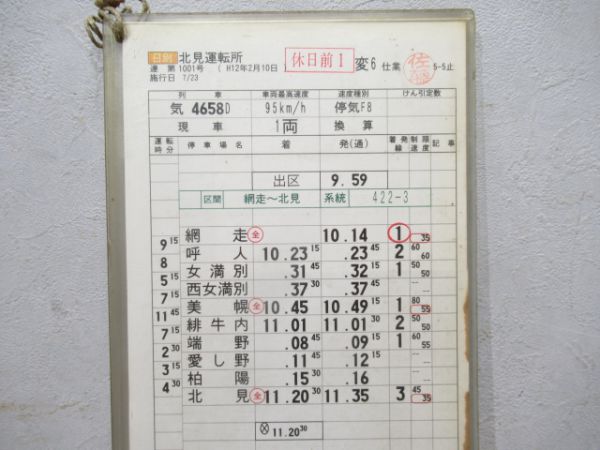 日別 北見運転所 休日前1 変6 仕業 佐藤 5-5止
運 第 1001号 ( H12年2月10日
施行日 7/23
列車 車両最高速度 速度種別 けん引定数
気 4658D 95km/h 停気F8
現車 1両 換算
運転時分 停車場名 着 発(通) 着発線 制限速度 記事
出区 9.59
区間 網走～北見 系統 422-3
網走 全 10.14 1 35
9 15
呼人 10.23 15 .23 45 2 60 60
8
女満別 .31 45 .32 45 1 50 50
5 15
西女満別 .37 30 .37 45
7 15
美幌 全 10.45 10.49 15 1 80 55
11 45
緋牛内 11.01 11.01 30 2 50 50
7 15
端野 .08 45 .09 15 1 60 55
2 30
愛し野 .11 45 .12 15
3 15
柏陽 .15 30 .16
4 30
北見 全 11.20 30 11.35 3 45 35
11.20 30